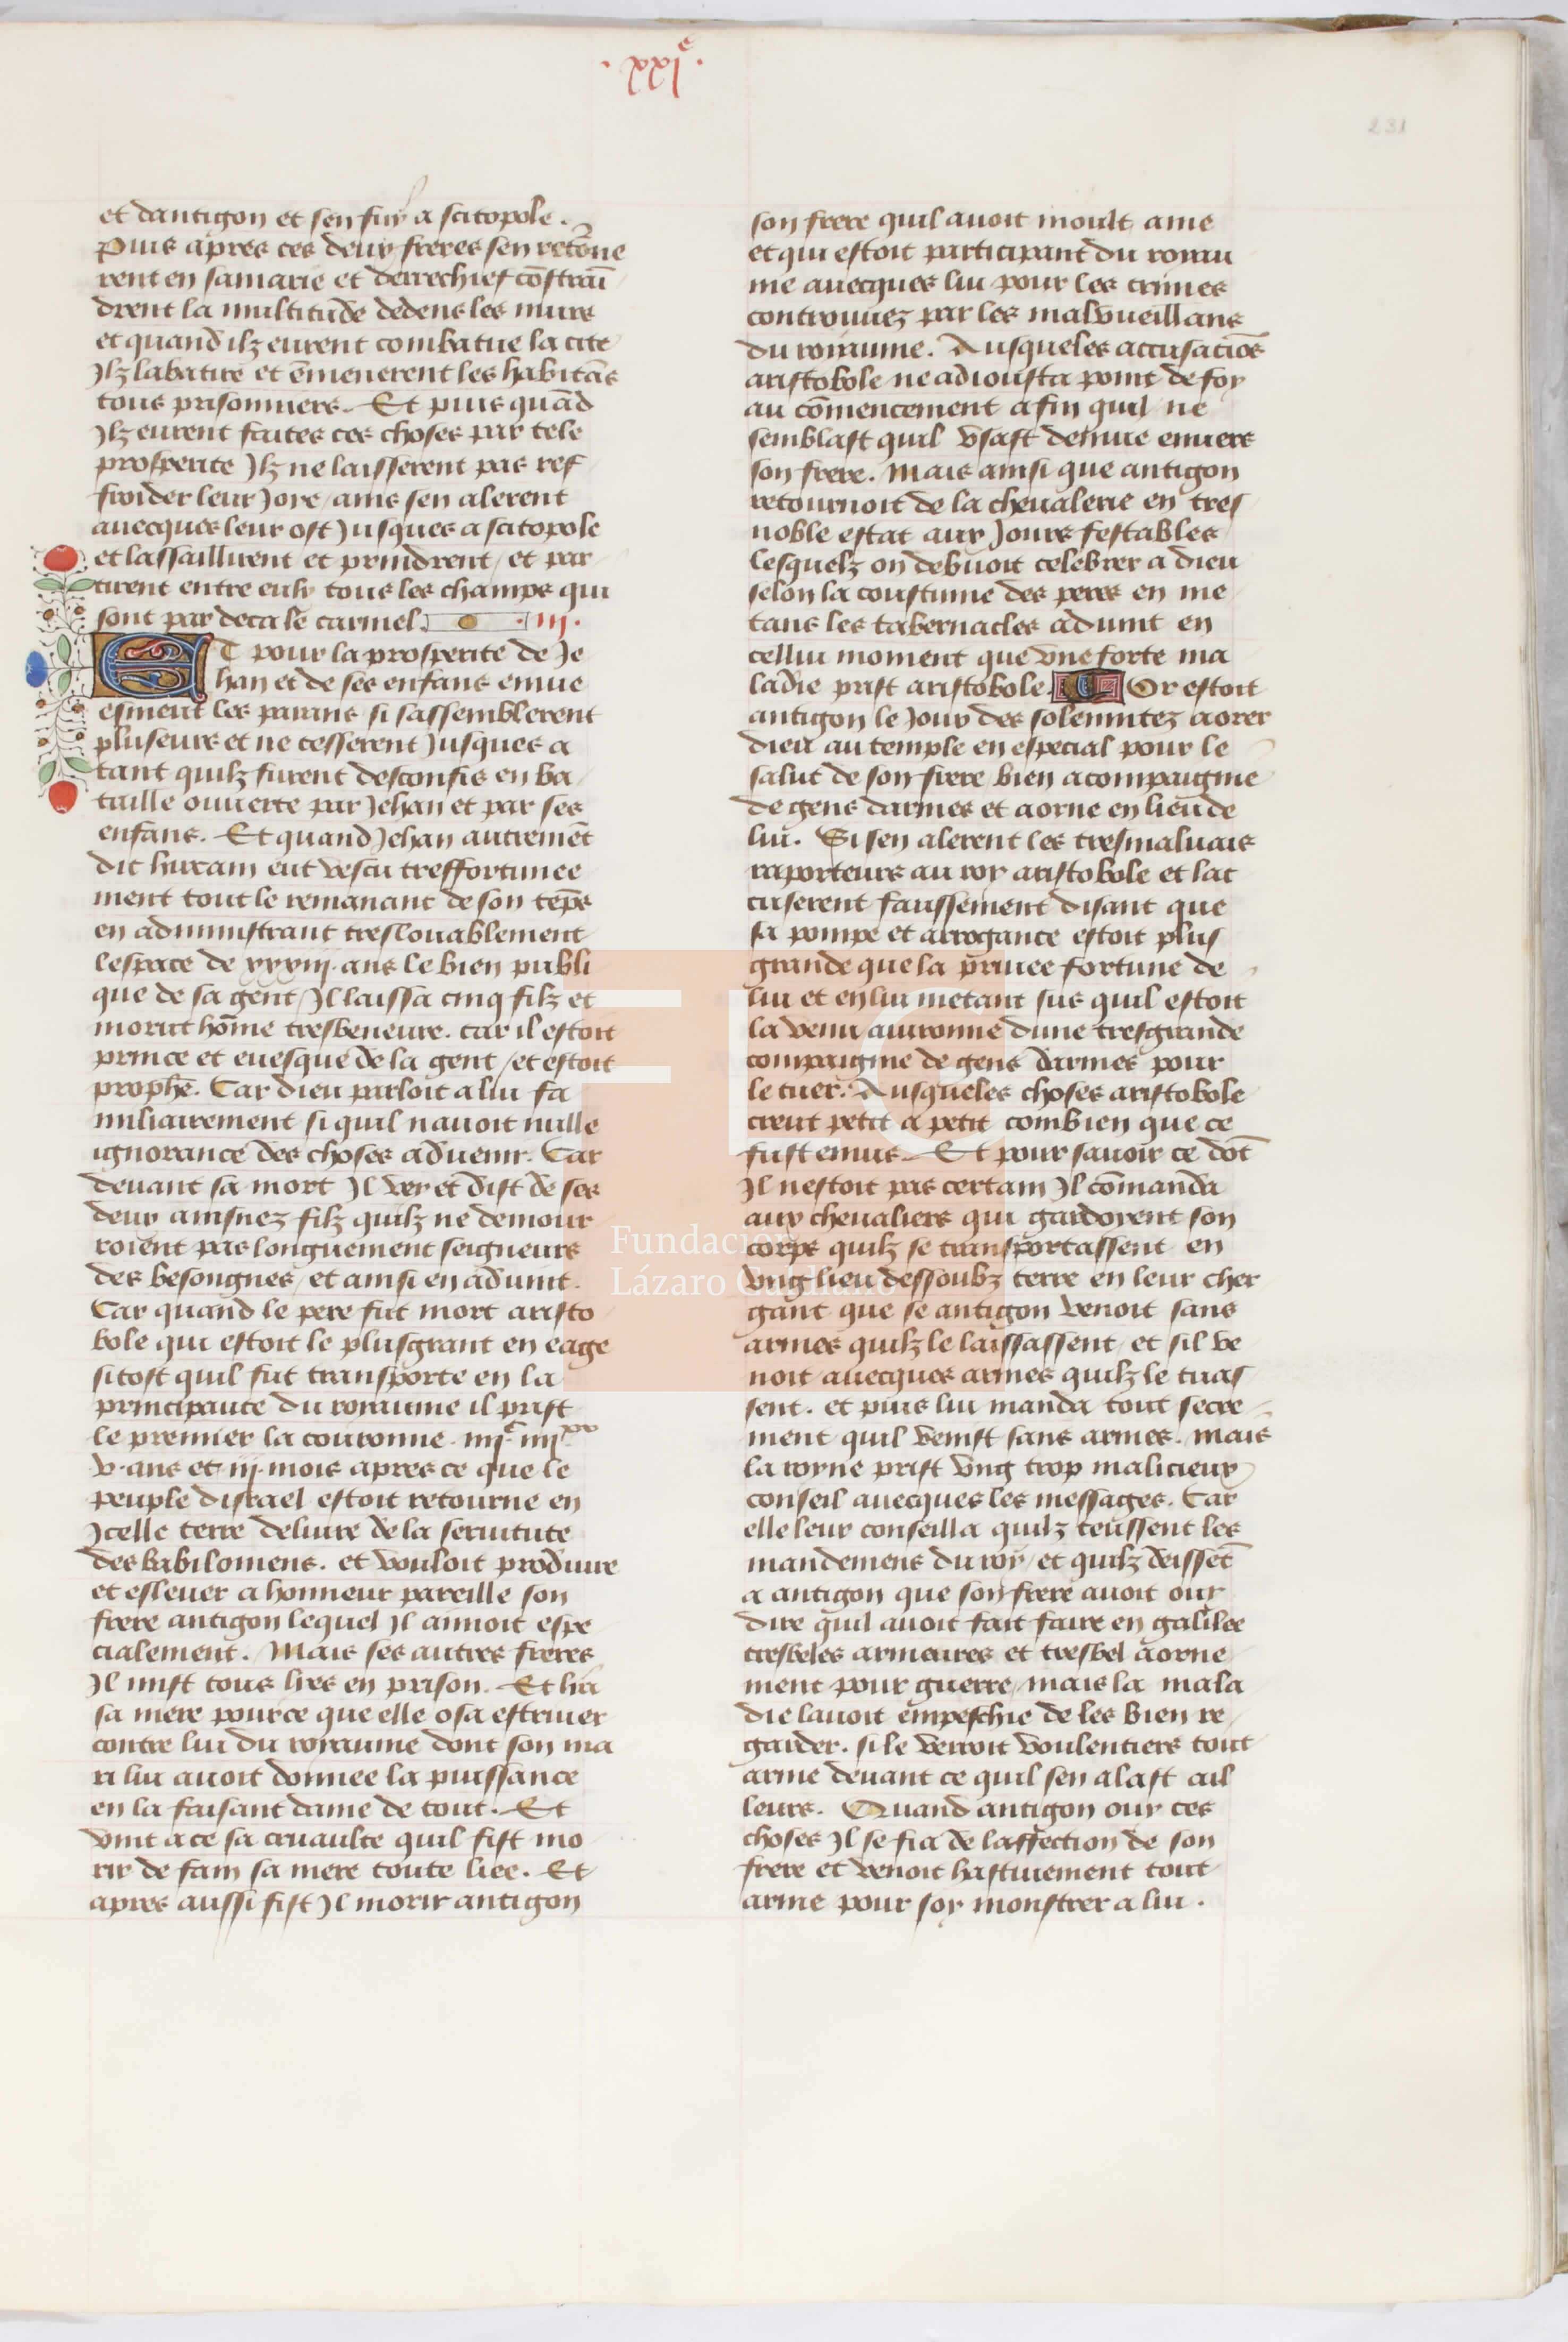 . xxi e .
231
et dantigon et sen fuy a scitopole .
Puis apres ces deux freres sen retour̃ne
rent en samarie et derrechief cõstraĩ
drent la multitude dedens les murs
et quand ilz eurent combatue la cite
Jlz labatirẽ et ẽmenerent les habitãs
tous prisonniers. Et puis quãd
Jlz eurent faites ces choses par tele
prosperite Jlz ne laisserent pas ref
froider leur Joye / ains sen alerent
auecques leur ost Jusques a scitopole
et lassaillirent et prindrent / et par
tirent entre eulx tous les champs qui
sont par deca le carmel. .iii.
ET pour la prosperite de Je
han et de ses enfans enuie
esmeut les paiens si sassemblerent
pluseurs et ne cesserent Jusques a
tant quilz furent desconfis en ba
taille ouuerte par Jehan et par ses
enfans. Et quand Jehan autremẽt
dit hircam eut vescu treffortunee
ment tout le remanant de son tẽps
en administrant treslouablement
lespace de xxxiii. ans le bien publi
que de sa gent / Jl laissa cinq filz et
morut hõme tresbeneure. car il estoit
prince et euesque de la gent / et estoit
prophẽ. Car dieu parloit a lui fa
miliairement si quil nauoit nulle
ignorance des choses aduenir. Car
deuant sa mort Jl vey et dist de ses
deux aisnez filz quilz ne demour
roient pas longuement seigneurs
des besongnes / et ainsi en aduint.
Car quand le pere fut mort aristo
bole qui estoit le plusgrant en eage
sitost quil fut transporte en la
principaute du royaume il prist
le premier la couronne. iiii c iiii xx
v. ans et iii. mois apres ce que le
peuple disrael estoit retourne en
Jcelle terre deliure de la seruitute
des babiloniens. et vouloit produire
et esleuer a honneur pareille son
frere antigon lequel Jl aimoit espe
cialement. Mais ses autres freres
Jl mist tous lies en prison. Et lia
sa mere pource que elle osa estriuer
contre lui du royaume dont son ma
ri lui auoit donnee la puissance
en la faisant dame de tout. Et
vint a ce sa cruaulte quil fist mo
rir de fain sa mere toute liee. Et
apres aussi fist Jl morir antigon
son frere quil auoit moult ame
et qui estoit participant du royau
me auecques lui pour les crimes
controuuez par les malvueillans
du royaume. Ausqueles accusaciõs
aristobole ne adiousta point de foy
au cõmencement afin quil ne
semblast quil vsast denuie enuers
son frere. Mais ainsi que antigon
retournoit de la cheualerie en tres
noble estat aux Jours festables
lesquelz on debuoit celebrer a dieu
selon la coustume des peres en me
tans les tabernacles aduint en
cellui moment que vne forte ma
ladie prist aristobole. Or estoit
antigon le Jour des solennitez aorer
dieu au temple en especial pour le
salut de son frere bien acompaignie
de gens darmes et aorne en lieu de
lui. Si sen alerent les tresmaluais
raporteurs au roy aristobole et lac
cuserent faussement disant que
sa pompe et arrogance estoit plus
grande que la priuee fortune de
lui et en lui metant sus quil estoit
la venu auironne dune tresgrande
compaignie de gens darmes pour
le tuer. Ausqueles choses aristobole
creut petit a petit combien que ce
fust enuis. Et pour sauoir ce dõt
Jl nestoit pas certain Jl cõmanda
aux cheualiers qui gardoyent son
corps quilz se transportassent en
vng lieu dessoubz terre en leur cher
gant que se antigon venoit sans
armes quilz le laissassent / et sil ve
noit auecques armes quilz le tuas
sent. et puis lui manda tout secre
ment quil venist sans armes. Mais
la royne prist vng trop malicieux
conseil auecques les messages. Car
elle leur conseilla quilz teussent les
mandemens du roy / et quilz deissẽt
a antigon que son frere auoit ouy
dire quil auoit fait faire en galilee
tresbeles armeures et tresbel aorne
ment pour guerre / mais la mala
die lauoit empeschie de les bien re
garder. si le verroit voulentiers tout
arme deuant ce quil sen alast ail
leurs. Quand antigon ouy ces
choses Jl se fia de laffection de son
frere et venoit hastiuement tout
arme pour soy monstrer a lui .
FLG
Fundación
Lázaro Galdiano